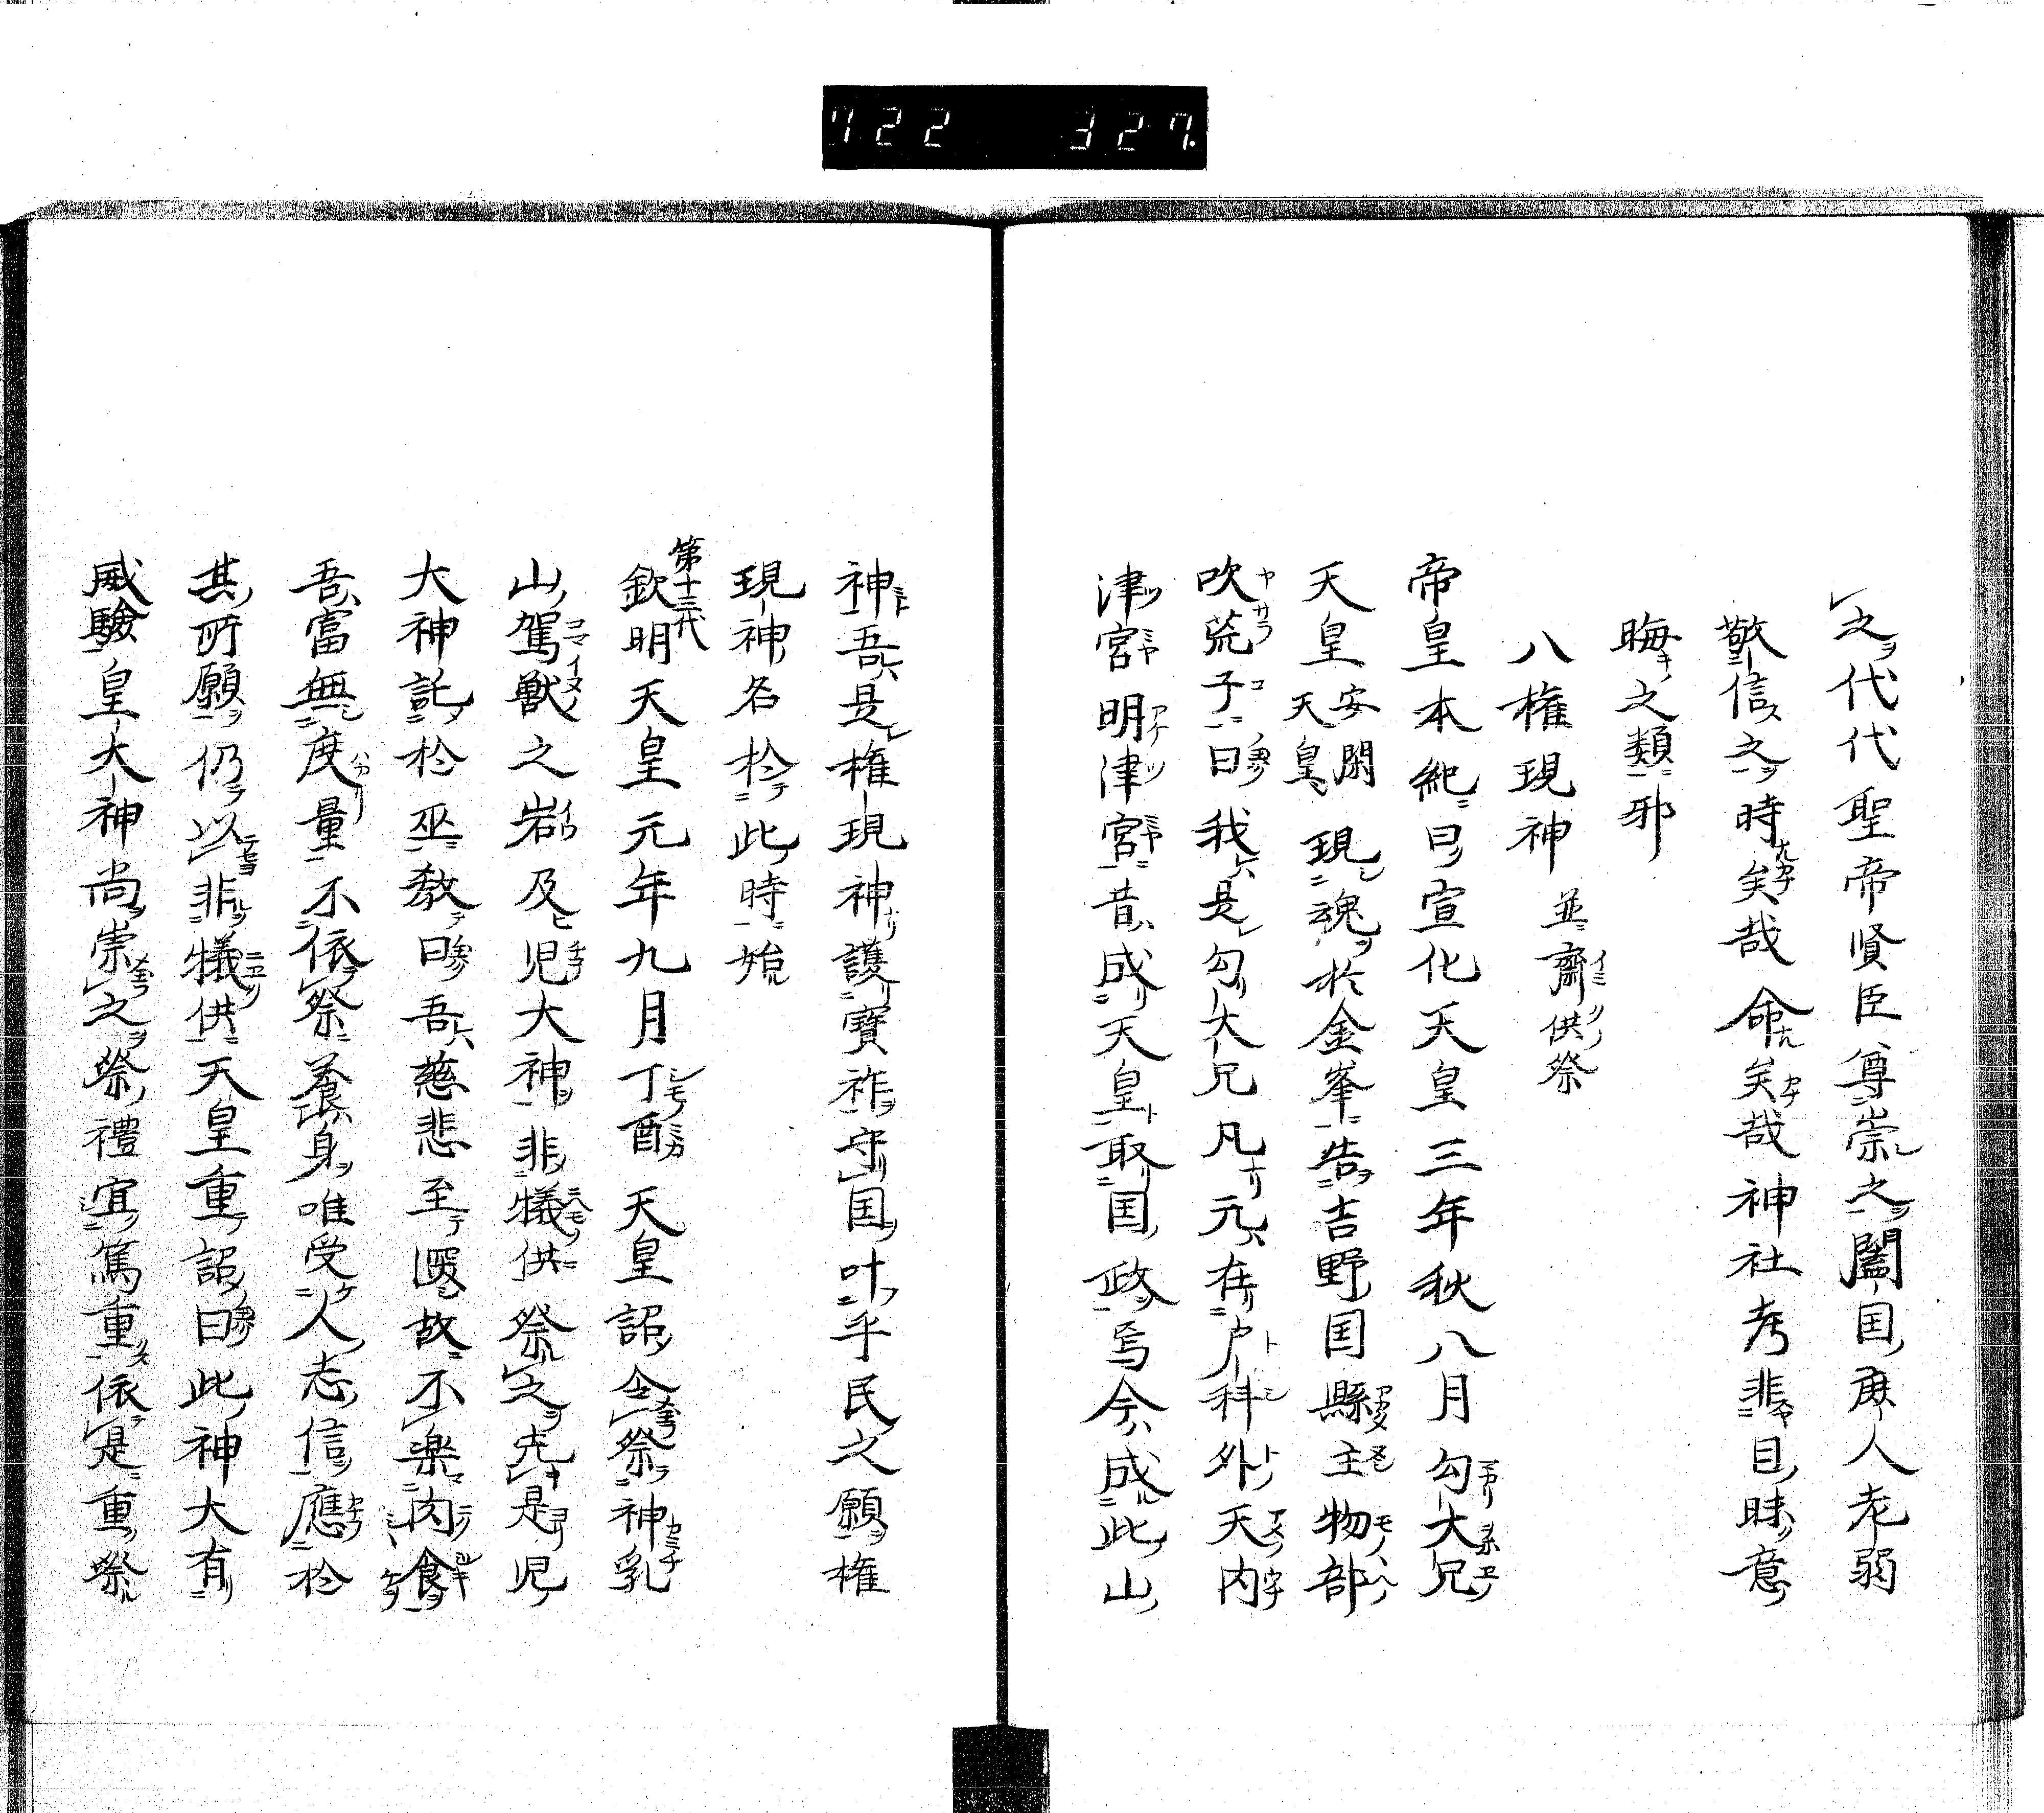 722 327
之代代聖帝賢臣尊崇之闔国庶人老弱
敬信之時矣哉命矣哉神社考悲目昧意
晦之類邪
八権現神 並齋供祭
帝皇本紀曰宣化天皇三年秋八月勾大兄
天皇 安閑天皇 現魂於金峯告吉野国縣主物部
吹荒子曰我是勾大兄凡元在戸科外天内
津宮明津宮昔成天皇取国政焉今成此山
神吾是権現神護寶祚守国叶乎民之願権
現神名於此時始
第十三代
欽明天皇元年九月丁酉天皇詔令祭神乳
山駕獣之岩及児大神非犠供祭之先是児
大神託於巫教曰吾慈悲至深故不楽肉食
吾富無度量不依祭養身唯受人志信應於
其所願仍以非犠供天皇重詔曰此神大有
威驗皇大神尚崇之祭禮宜篤重依是重祭